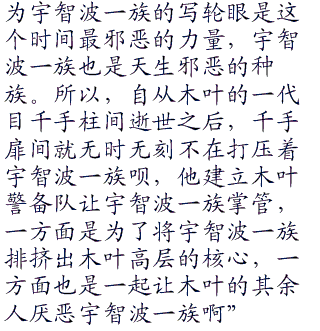 为宇智波一族的写轮眼是这
个时间最邪恶的力量，宇智
波一族也是天生邪恶的种
族。所以，自从木叶的一代
目千手柱间逝世之后，千手
扉间就无时无刻不在打压着
宇智波一族呗，他建立木叶
警备队让宇智波一族掌管，
一方面是为了将宇智波一族
排挤出木叶高层的核心，一
方面也是一起让木叶的其余
人厌恶宇智波一族啊”